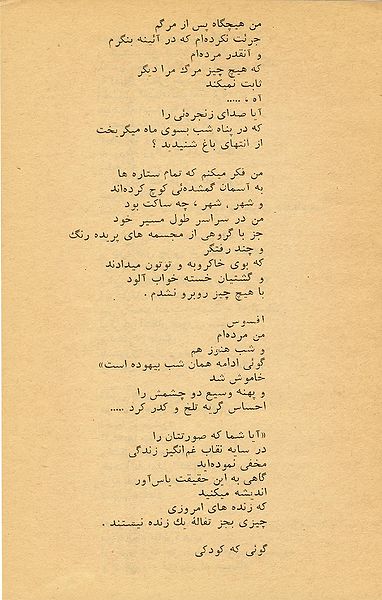 من هیچگاه پس از مرگم
جرئت نکرده‌ام که در آئینه بنگرم
و آنقدر مرده‌ام
که هیچ چیز مرگ مرا دیگر
ثابت نمیکند
آه ، .....
آیا صدای زنجره‌ئی را
که در پناه شب بسوی ماه میگریخت
از انتهای باغ شنیدید ؟
من فکر میکنم که تمام ستاره ها
به آسمان گمشده‌ئی کوچ کرده‌اند
و شهر ، شهر ، چه ساکت بود
من در سراسر طول مسیر خود
جز با گروهی از مجسمه های پریده رنگ
و چند رفتگر
که بوی خاکروبه و توتون میدادند
و گشتیان خسته خواب آلود
با هیچ چیز روبرو نشدم .
افسوس
من مرده‌ام
و شب هنوز هم
گوئی ادامه همان شب بیهوده است»
خاموش شد
و پهنه وسیع دو چشمش را
احساس گریه تلخ و کدر کرد .....
«آیا شما که صورتتان را
در سایه نقاب غم‌انگیز زندگی
مخفی نموده‌اید
گاهی به این حقیقت یاس‌آور
اندیشه میکنید
که زنده های امروزی
چیزی بجز تفالهٔ یك زنده نیستند .
گوئی که کودکی